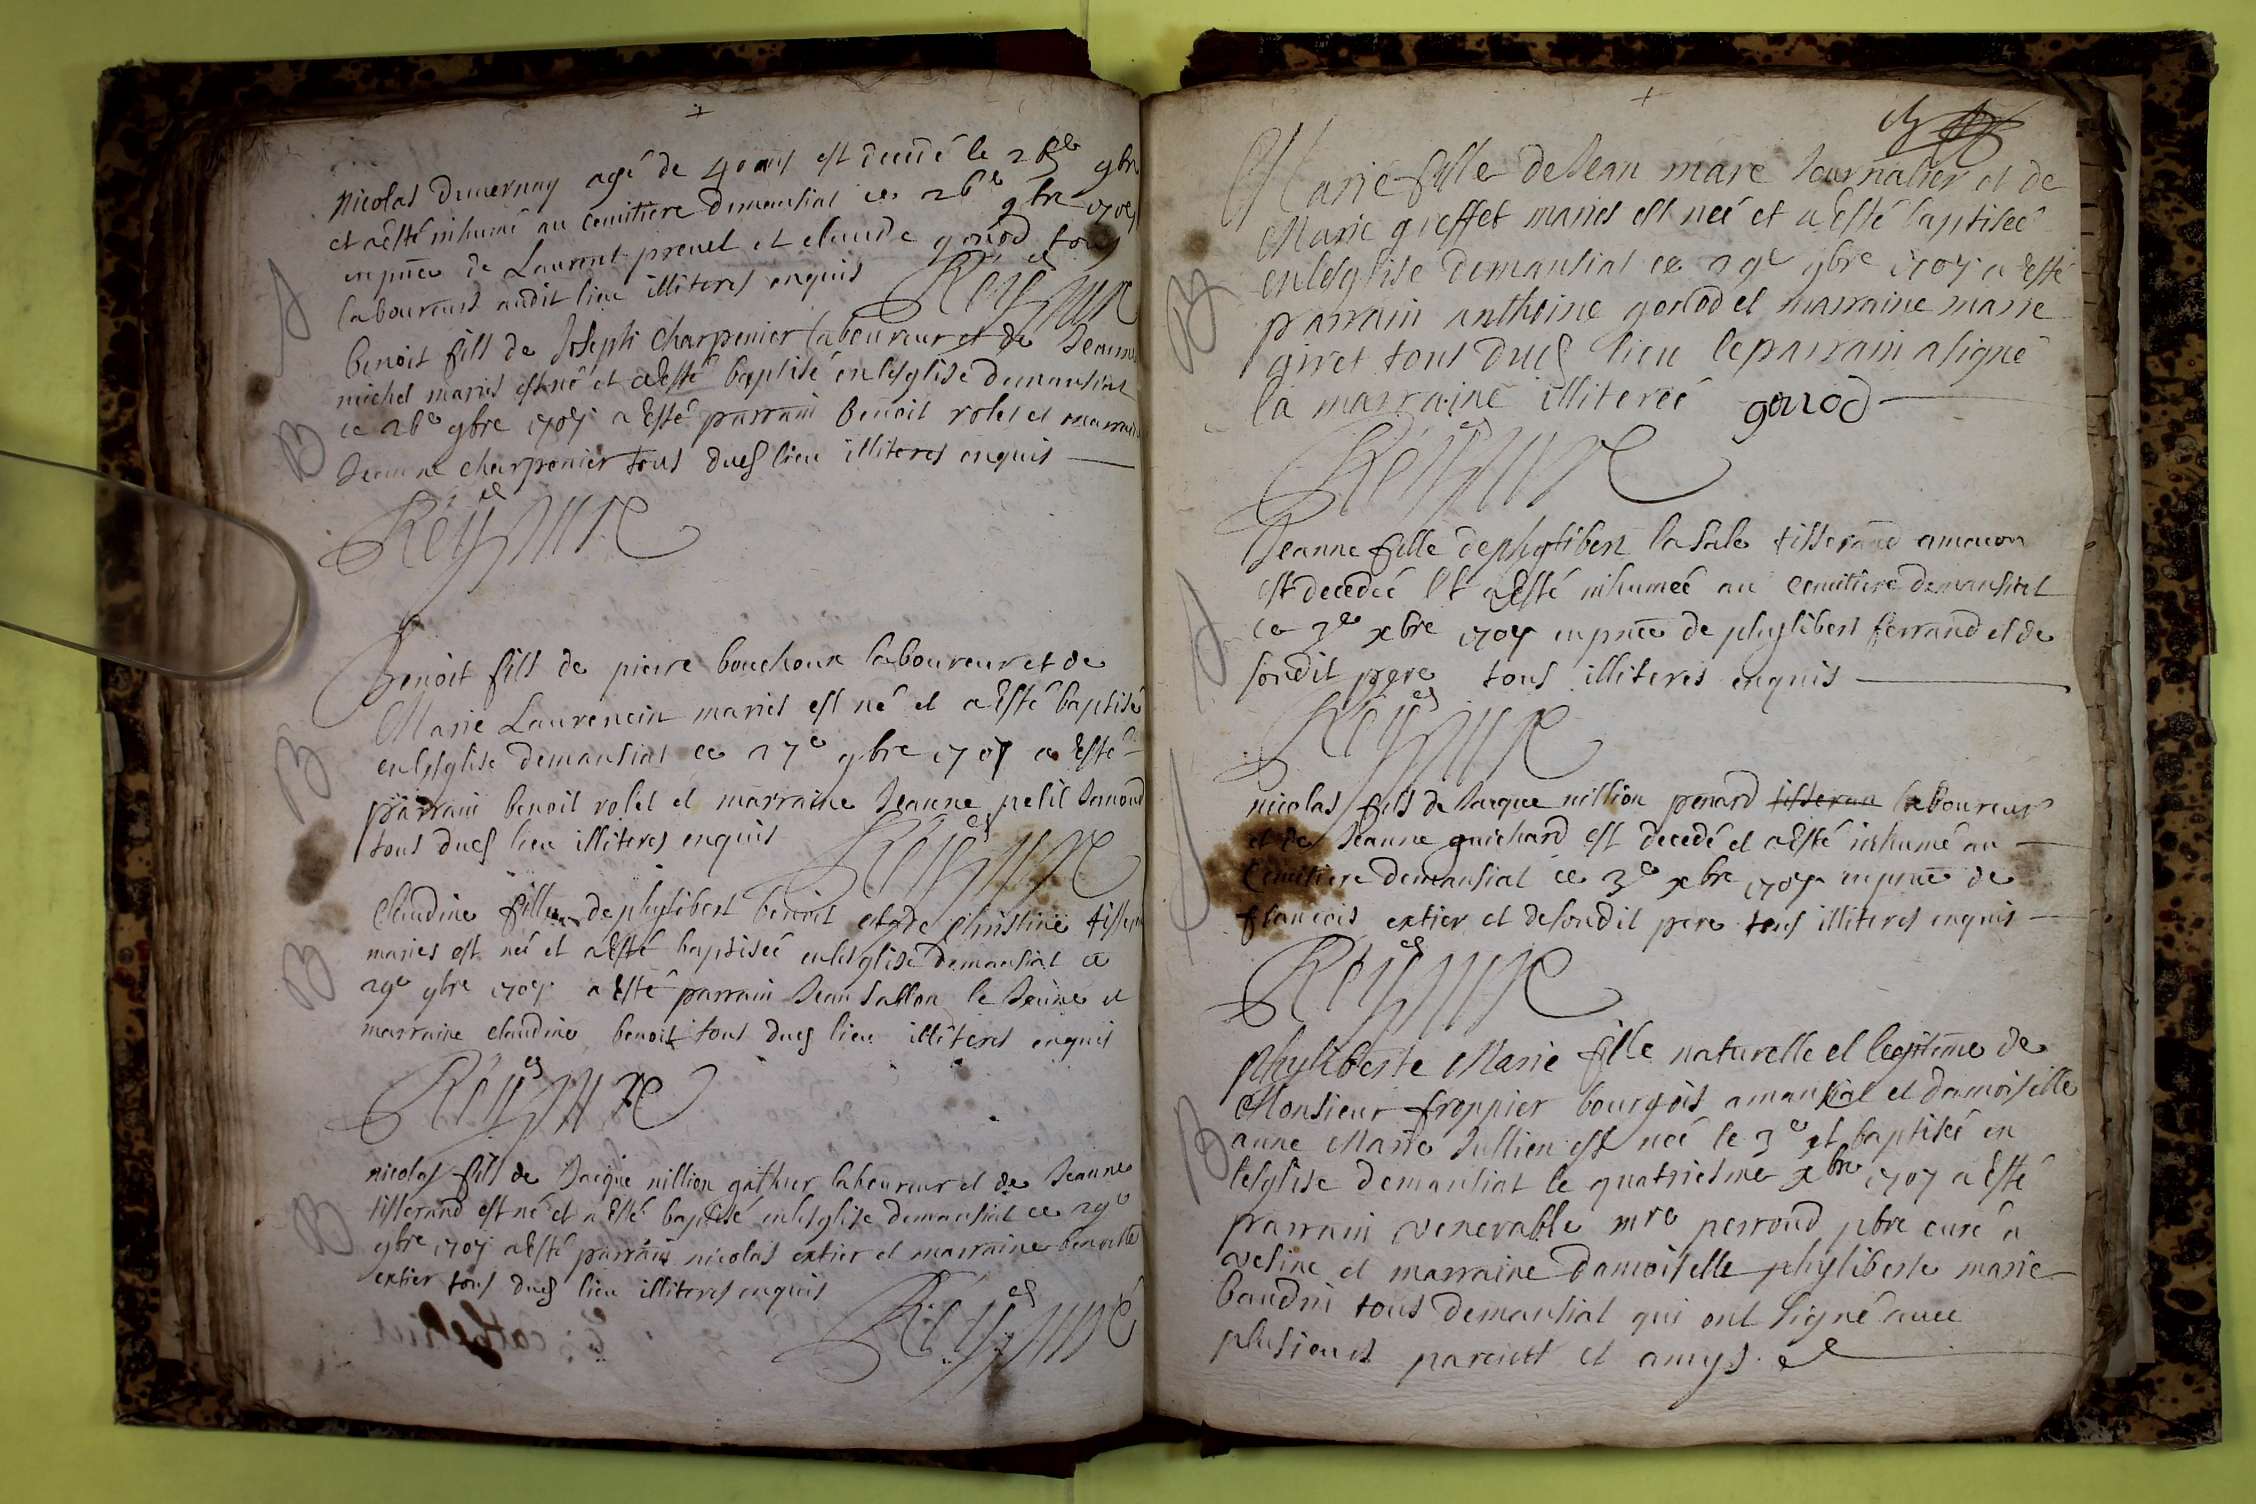 nicolas duuernay agé de 40 ans est decedé le 25e 9bre
et a esté inhumé au cemitiere demansiat ce 26e 9bre 1707
en pnce de Laurent preuel et claude gonod tous
laboureurs audit lieu illiteres enquis
Rey
benoit fils de Joseph charpenier laboureur et de Jeanne
michel mariés est né et a esté baptisé en lesglise demansiat
ce 26e 9bre 1707 a esté parrain benoit rolet et marraine
Jeanne charpenier tous dud lieu illiteres enquis
Rey
Benoit fils de pierre bouchoux laboureur et de
Marie Laurencin mariés est né et a esté baptisé
en lesglise demansiat ce 27e 9bre 1707 a esté
parrain benoit rolet et marraine Jeanne petit Jamond
tous dud lieu illiteres enquis
Rey
Claudine fille de phylibert benoit et de christine tisserand
mariés est neé et a esté baptiseé en lesglise demansiat ce
29e 9bre 1707 a esté parrain Jean sallon le Jeune et
marraine claudine benoit tous dud lieu illiteres enquis
Rey
nicolas fils de Jacque million gathier laboureur et de Jeanne
tisserand est né et a esté baptisé en lesglise demansiat ce 29e
9bre 1707 a esté parrain nicolas extier et marraine benoitte
extier tous dud lieu illiteres enquis
Rey
Marie fille de Jean mare Journalier et de
Marie greffet mariés est neé et a esté baptiseé
en lesglise demansiat ce 29e 9bre 1707 a esté
parrain anthoine gonod et marraine marie
giret tous dud lieu le parrain a signé
la marraine illitereé gonod
Rey
Jeanne fille de phylibert la sale tisserand amacon
est decedeé et a esté inhumeé au cemitiere demansiat
ce 3e xbre 1707 en pnce de phylibert ferrand et de
sondit pere tous illiteres enquis
Rey
nicolas fils de Jacque million penard tisseran laboureur
et de Jeanne guichard est decedé et a esté inhumé au
Cemitiere demansiat ce 3e xbre 1707 en pnce de
francois extier et de sondit pere tous illiteres enquis
Rey
phyliberte Marie fille naturelle et legitime de
Monsieur froppier bourgois amansiat et damoiselle
anne Marie Jullien est neé le 3e et baptiseé en
lesglise demansiat le quatriesme xbre 1707 a esté
parrain venerable mre perroud pbre curé a
vesine et marraine damoiselle phyliberte marie
baudin tous demansiat qui ont signé auec
plusieurs pareints et amys.